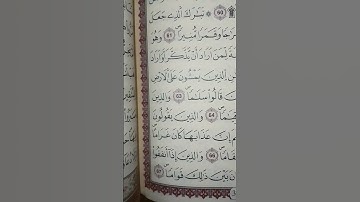 ۝٦٠ تَبَارَكَ ٱلَّذِى جَعَلَ
وَقَمَرًا مُّنِيرًا ۝٦١ وَهُوَ
لِّمَنْ أَرَادَ أَن يَذَّكَّرَ أَوْ أَرَادَ
ٱلَّذِينَ يَمْشُونَ عَلَى ٱلْأَرْضِ
قَالُوا۟ سَلَٰمًا ۝٦٣ وَٱلَّذِينَ
۝٦٤ وَٱلَّذِينَ يَقُولُونَ
إِنَّ عَذَابَهَا كَانَ غَرَامًا
۝٦٦ وَٱلَّذِينَ إِذَآ أَنفَقُوا۟
بَيْنَ ذَٰلِكَ قَوَامًا ۝٦٧